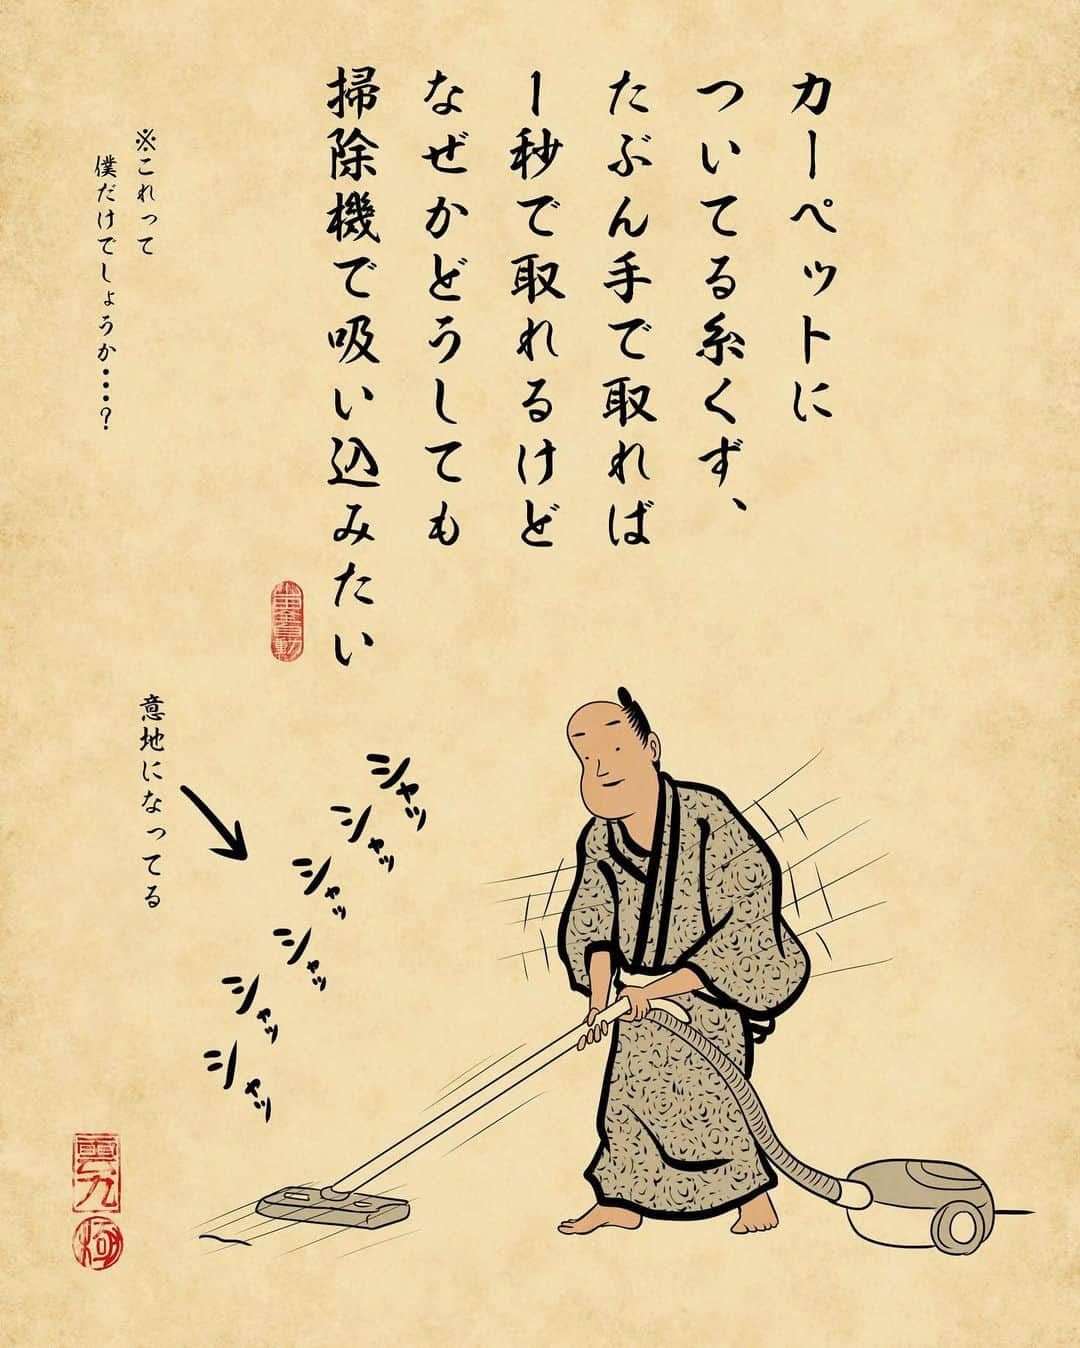 カーペットに
ついてる糸くず、
たぶん手で取れば
一秒で取れるけど
なぜかどうしても
掃除機で吸い込みたい
※これって
僕だけでしょうか・・・？
意地になってる
シャッ
シャッ
シャッ
シャッ
シャッ
シャッ